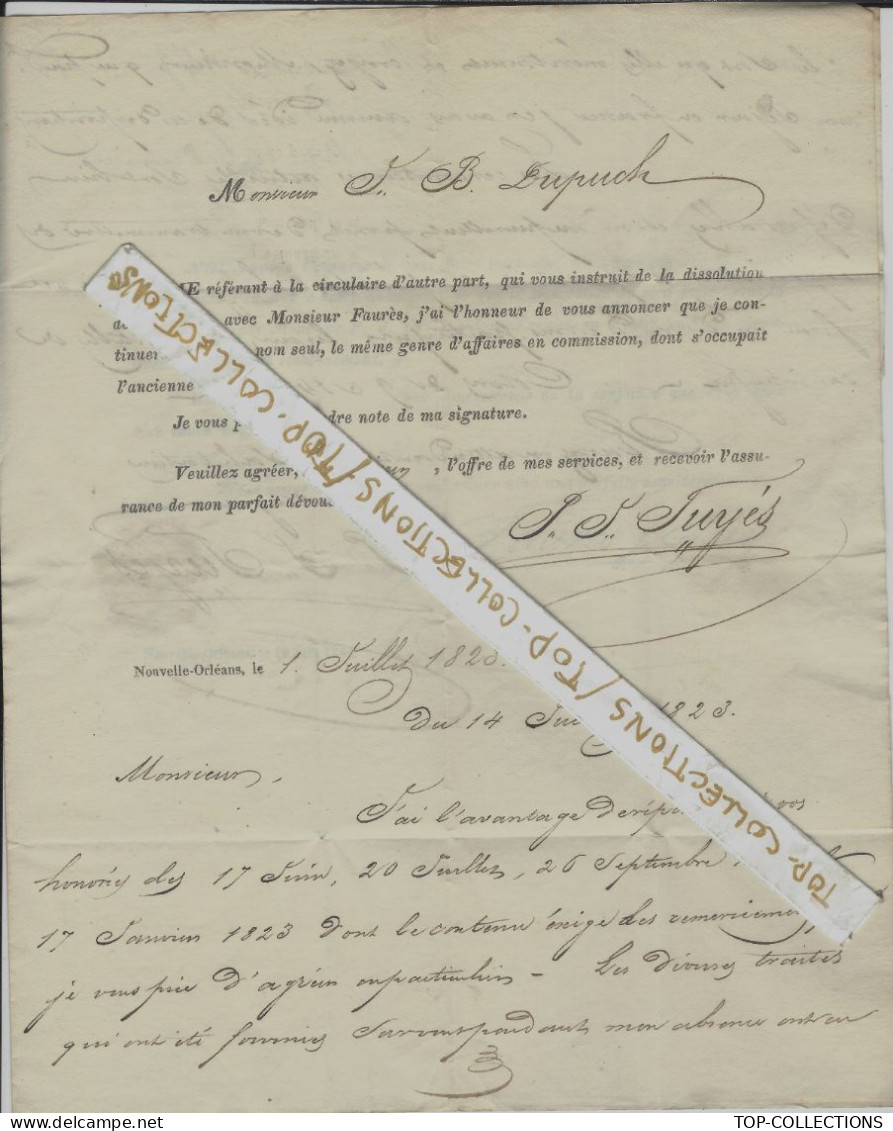 Monsieur J. B. Dupuch
ME référant à la circulaire d'autre part, qui vous instruit de la dissolution
avec Monsieur Faurès, j'ai l'honneur de vous annoncer que je con-
tinuer nom seul, le même genre d'affaires en commission, dont s'occupait
l'ancienne
Je vous p dre note de ma signature.
Veuillez agréer, , l'offre de mes services, et recevoir l'assu-
rance de mon parfait dévou
P. J. Tuyés
Nouvelle-Orléans, le 1. Juillet 1823.
Du 14 Jui 1823.
Monsieur,
J'ai l'avantage de répo vos
honorées des 17 Juin, 20 Juillet, 26 Septembre
17 Janvier 1823 dont le contenu éxige des remerciemen
je vous prie d'agréer en particulier - Les diverses traites
qui ont été fournies sur vous pendant mon absence ont eu
TOP-COLLECTIONS/TOP-COLLECTIONS/TOP-COLLECTIONS/TOP-COLLECTIONS
TOP-COLLECTIONS